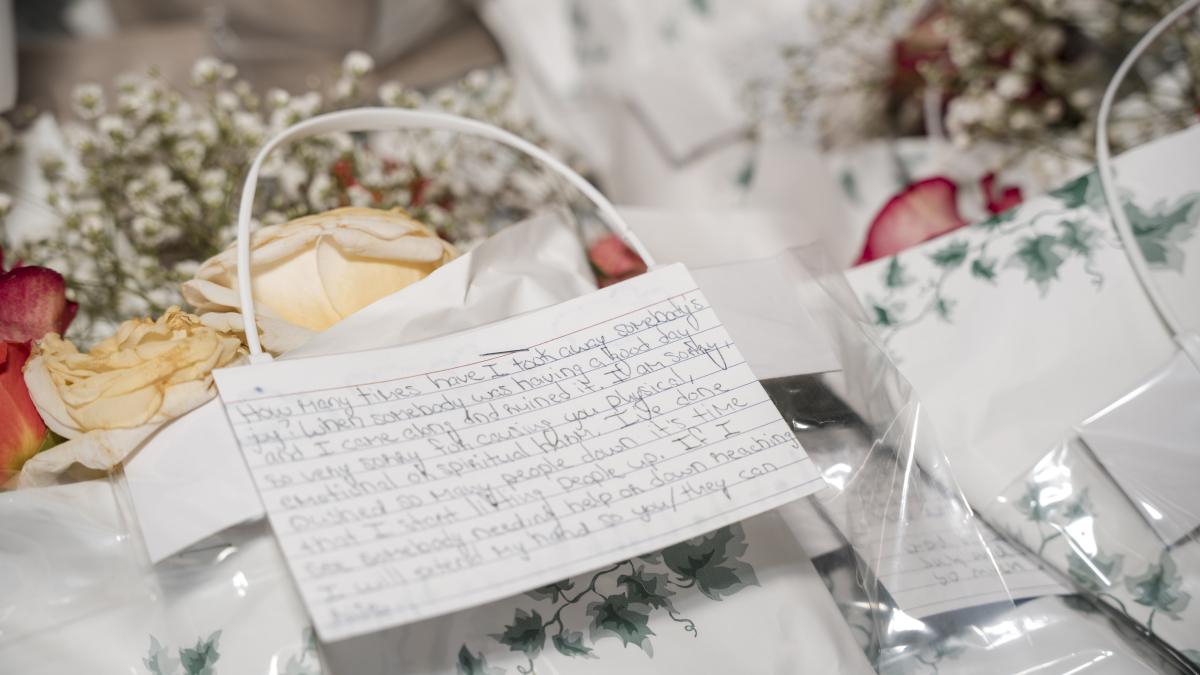 How many times have I took away somebody's
joy? When somebody was having a good day
and I came along and ruined it. I am sorry,
so very sorry for causing you physical,
emotional or spiritual harm. I've done
pushed so many people down it's time
that I start lifting people up. If I
see somebody needing help or down reaching
I will extend my hand so you/they can